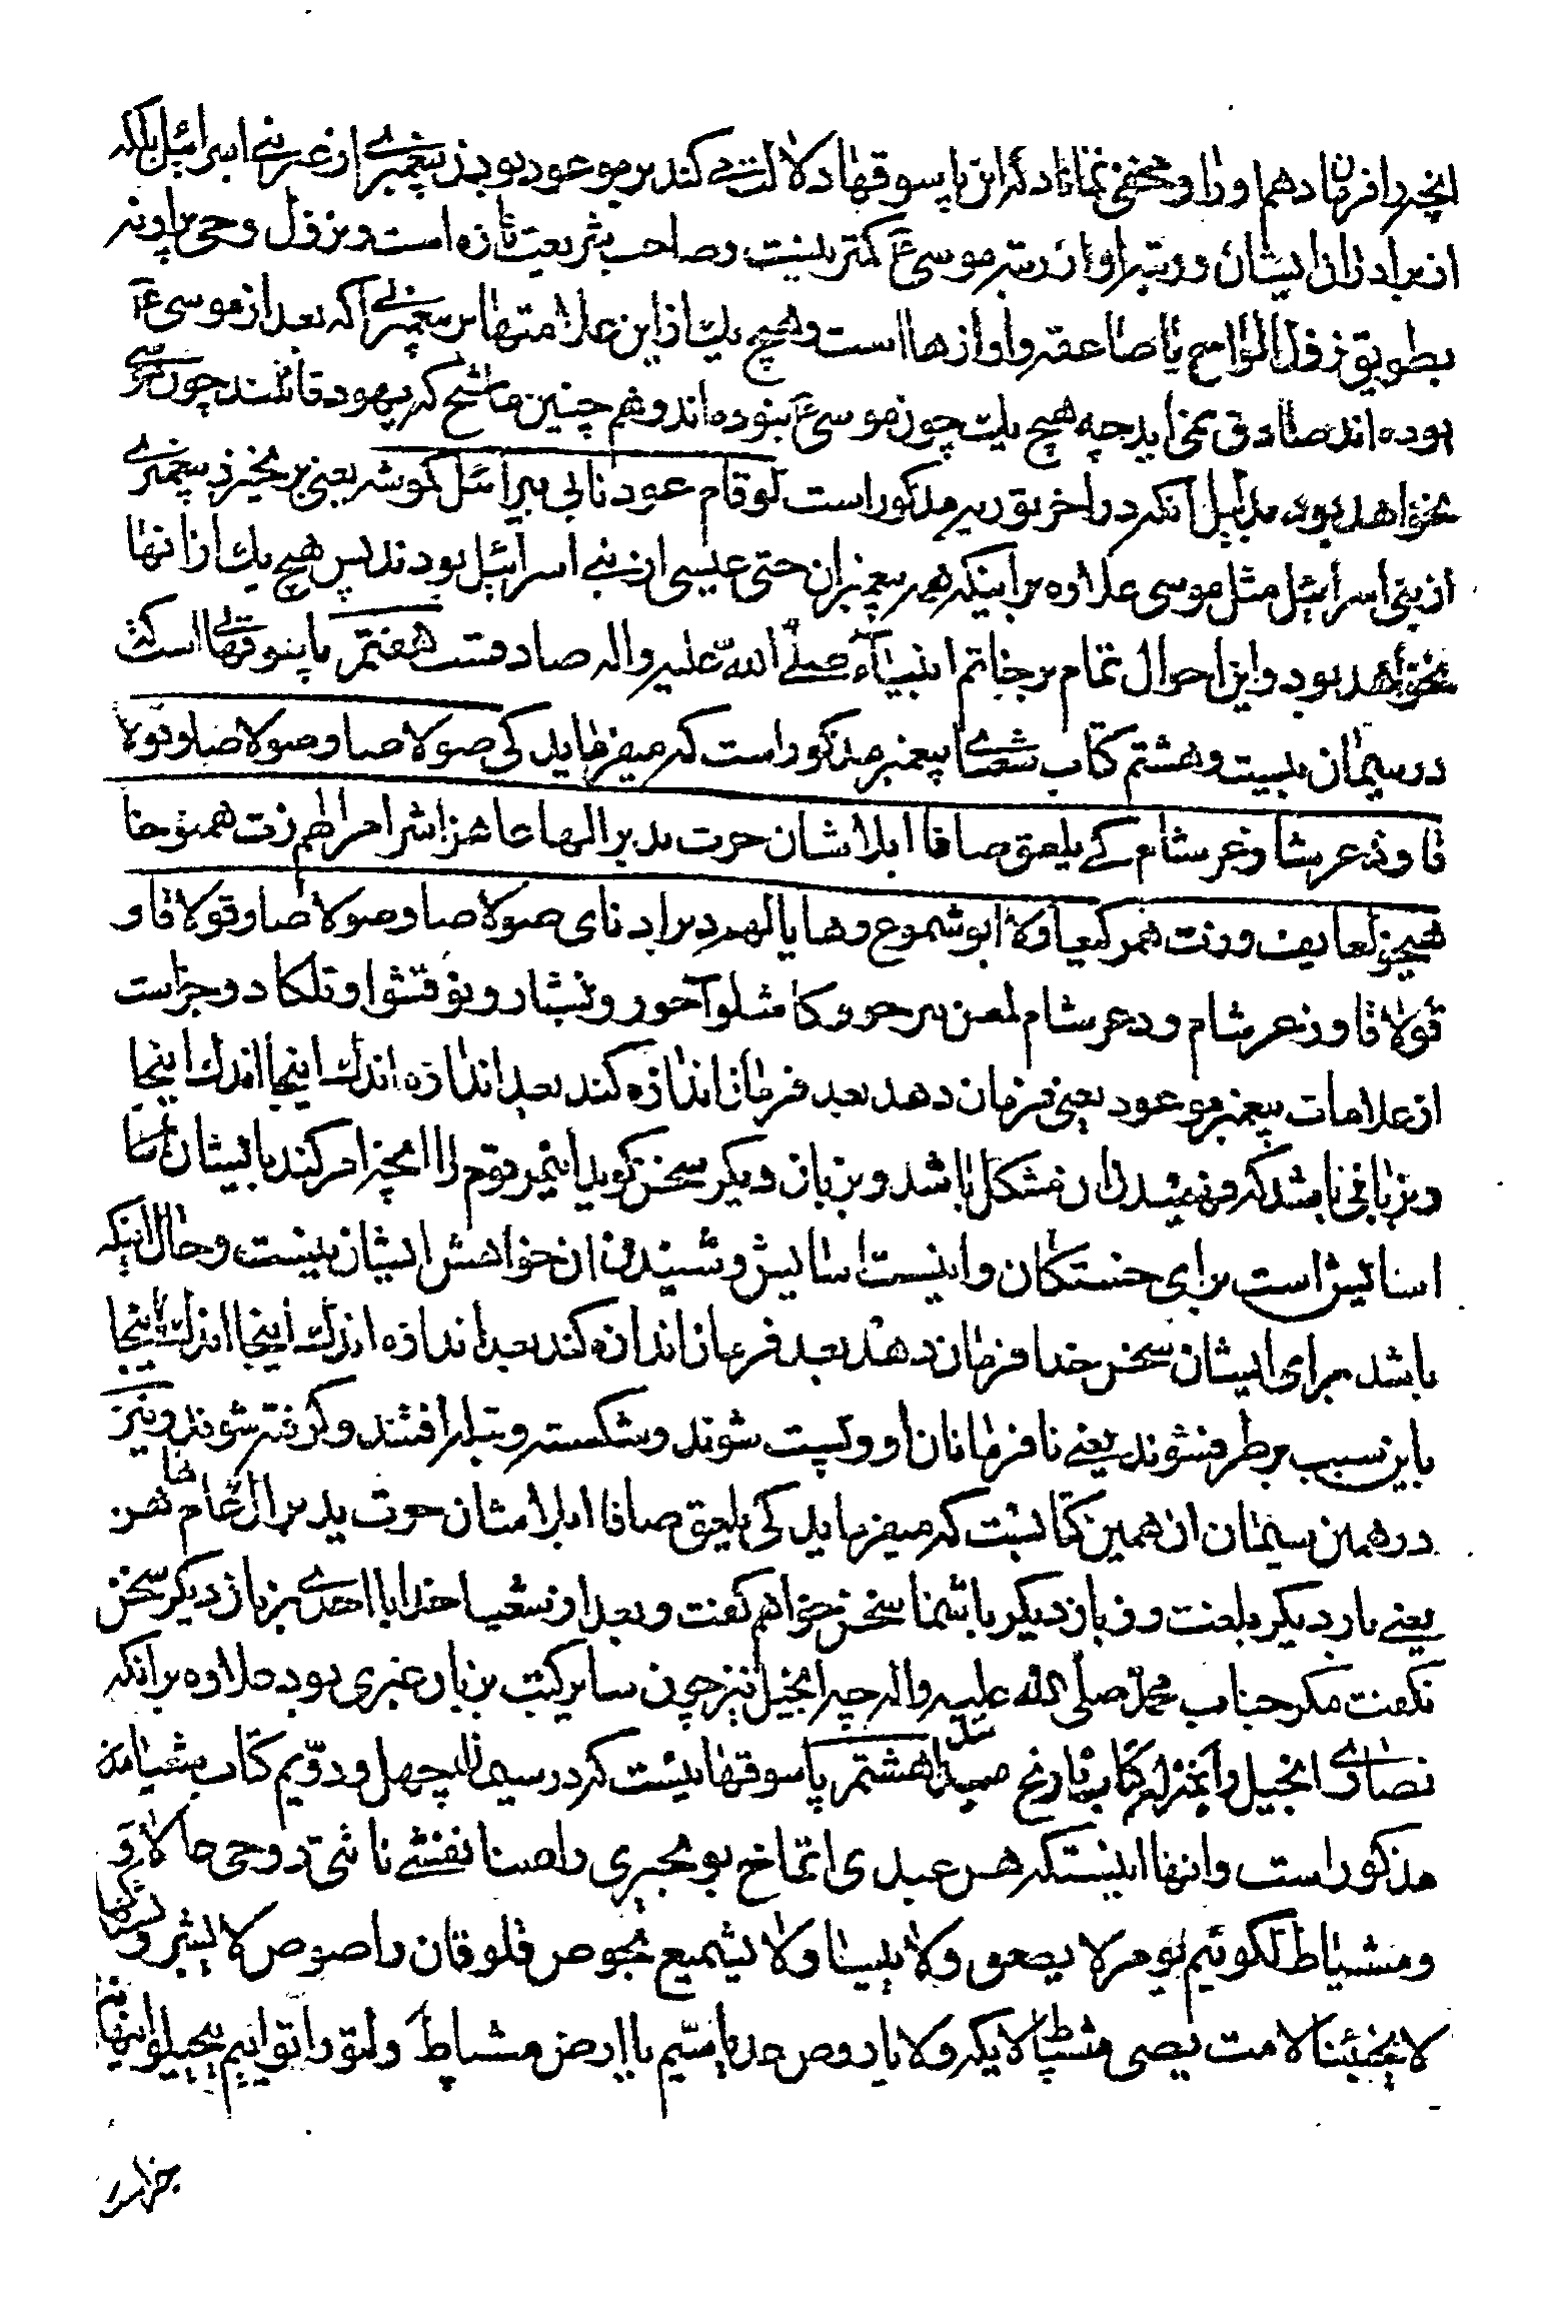 انچه را فرمان دهم اورا و مخفی نماناد که این پاسوقها دلالت می کند بر موعود بودن پیغمبری از غیر بنی اسرائیل بلکه
از برادران ایشان و رتبه او از رتبه موسی ع کمتر نیست و صاحب شریعت تازه است و نزول وحی بر او نه
بطریق نزول الواح یا صاعقه و اوازها است و هیچ یک از این علامتها بر پیغمبرانی که بعد از موسی ع
بوده اند صادق نمی اید چه هیچ یک چون موسی ع نبوده اند و هم چنین ماشیح که یهود قائلند چون موسی
نخواهد بود بدلیل آنکه در اخر توریه مذکور است لوقام عود نابی بیرائیل کموشه یعنی بر نخیزد پیغمبری
از بنی اسرائیل مثل موسی علاوه بر اینکه همه پیغمبران حتی عیسی از بنی اسرائیل بودند پس هیچ یک از انها
نخواهد بود و این احوال تمام بر خاتم انبیآء صلی الله علیه و اله صادقست هفتم پاسوقهائی است که
در سیمان بیست و هشتم کتاب شعیای پیغمبر مذکور است که میفرماید کی صولاصاو صولاصاو قولا
قاو زعر شا وزعر شام کی بلعق صافا ابلاشان حرت یدبر الها عاهز اشر امر الهم زت همنوحا
هیجو لعایف وزت همرکیعا ولا ابو شموع وهایا الهم دبر ادنای صولاصاو صولاصاو قولا قاو
قولا قاو زعر شام وزعر شام لمعن یرحو وکاشلو آحور ونشبار و نوقشو ا و تلکادو جز است
از علامات پیغمبر موعود یعنی فرمان دهد بعد فرمان اندازه کند بعد اندازه اندک اینجا اندک اینجا
و بزبانی باشد که فهمیدن ان مشکل باشد و بزبان دیگر سخن گوید اینمر قوم را انچه امر کند بایشان
اسایش است برای خستگان و اینست اسایش و شنیدن ان خواهش ایشان نیست و حال اینکه
باشد برای ایشان سخن خدا فرمان دهد بعد فرمان اندازه کند بعد اندازه اندک اینجا اندک اینجا
باین سبب بر طرف شوند یعنی نافرمانان او و پست شوند و شکسته و بتله افتند و گرفته شوند و نیز
در همین سیمان از همین کتابست که میفرماید کی بلعق صافا ابلاشان حوت یدبر ال عام هزه
یعنی بار دیگر بلغت و زبان دیگر باشما سخن خواهم گفت و بعد از شعیا خدا با احدی بزبان دیگر سخن
نگفت مگر جناب محمد صلی الله علیه و اله چه انجیل نیز چون سایر کتب بزبان عبری بود علاوه بر انکه
نصاری انجیل را بمنزله کتاب تاریخ میدانند هشتم پاسوقهائیست که در سیمان چهل و دویم کتاب شعیا
مذکور است و انها اینستکه هن عبدی اتماخ بو بحیری راصتا نفشی ناثتی روحی عالاو
ومشپاط لگوئیم یوصی لا یصعق ولا ییسا ولا یشمیع بحوص قلو قان راصوص لا یشبر
لا یخبئنا لامت یصی مشپاط لا یکه ولا یاروص عد یاسیم باارض مشپاط ولتوراتو ایم یحیلو اینها